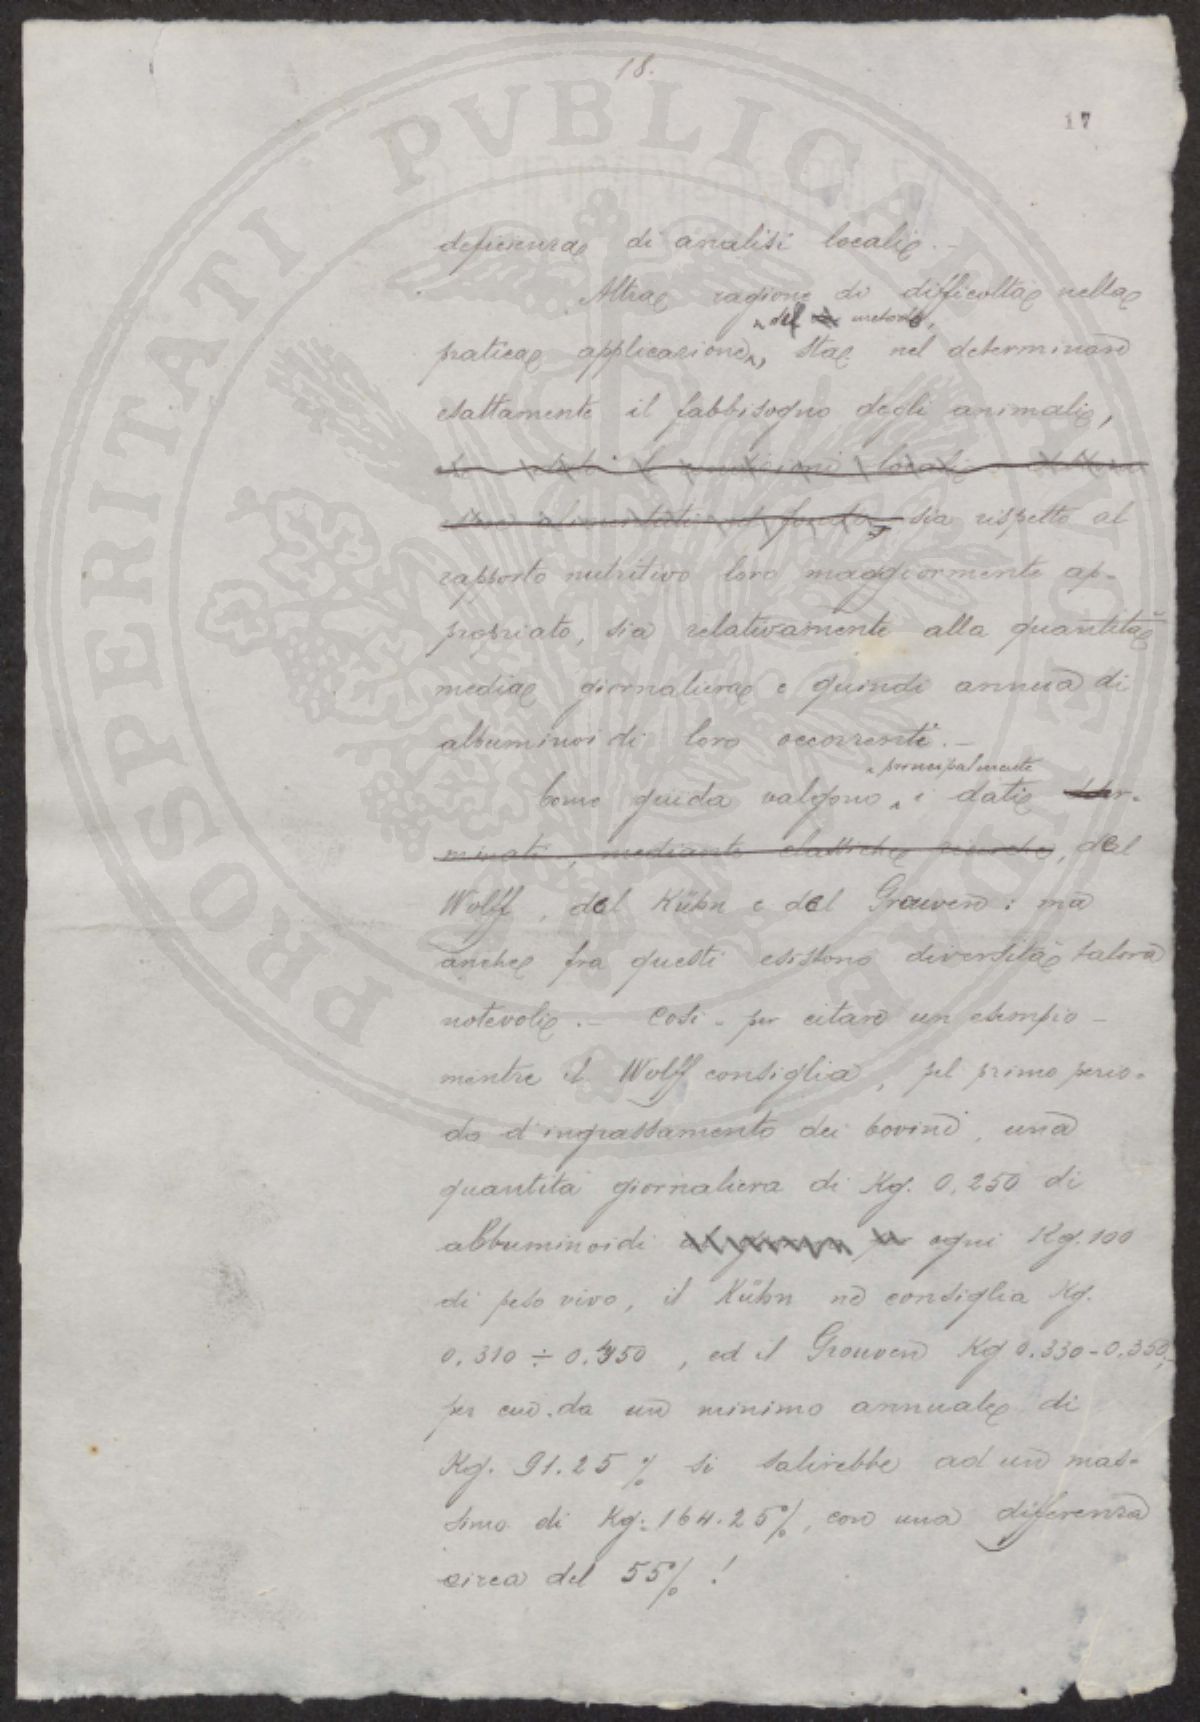 18.
17
PROSPERITATI PVBLICAE
deficienza di analisi locali.-
Altra ragione di difficoltà nella
del metodo,
pratica applicazione, sta nel determinare
esattamente il fabbisogno degli animali,
sia rispetto al
rapporto nutritivo loro maggiormente ap-
propriato, sia relativamente alla quantità
media giornaliera e quindi annua di
albuminoidi loro occorrente.-
principalmente
Come guida valgono i dati deter-
minati, mediante classiche ricerche, del
Wolff, del Kühn e del Grouven: ma
anche fra questi esistono diversità talora
notevoli.- Così - per citare un esempio -
mentre il Wolff consiglia, pel primo perio-
do d'ingrassamento dei bovini, una
quantità giornaliera di Kg. 0,250 di
albuminoidi per ogni Kg. 100
di peso vivo, il Kühn ne consiglia Kg.
0.310 ÷ 0.450, ed il Grouven Kg 0.330-0.350;
per cui da un minimo annuale di
Kg. 91.25 % si salirebbe ad un mas-
simo di Kg. 164.25%, con una differenza
circa del 55% !